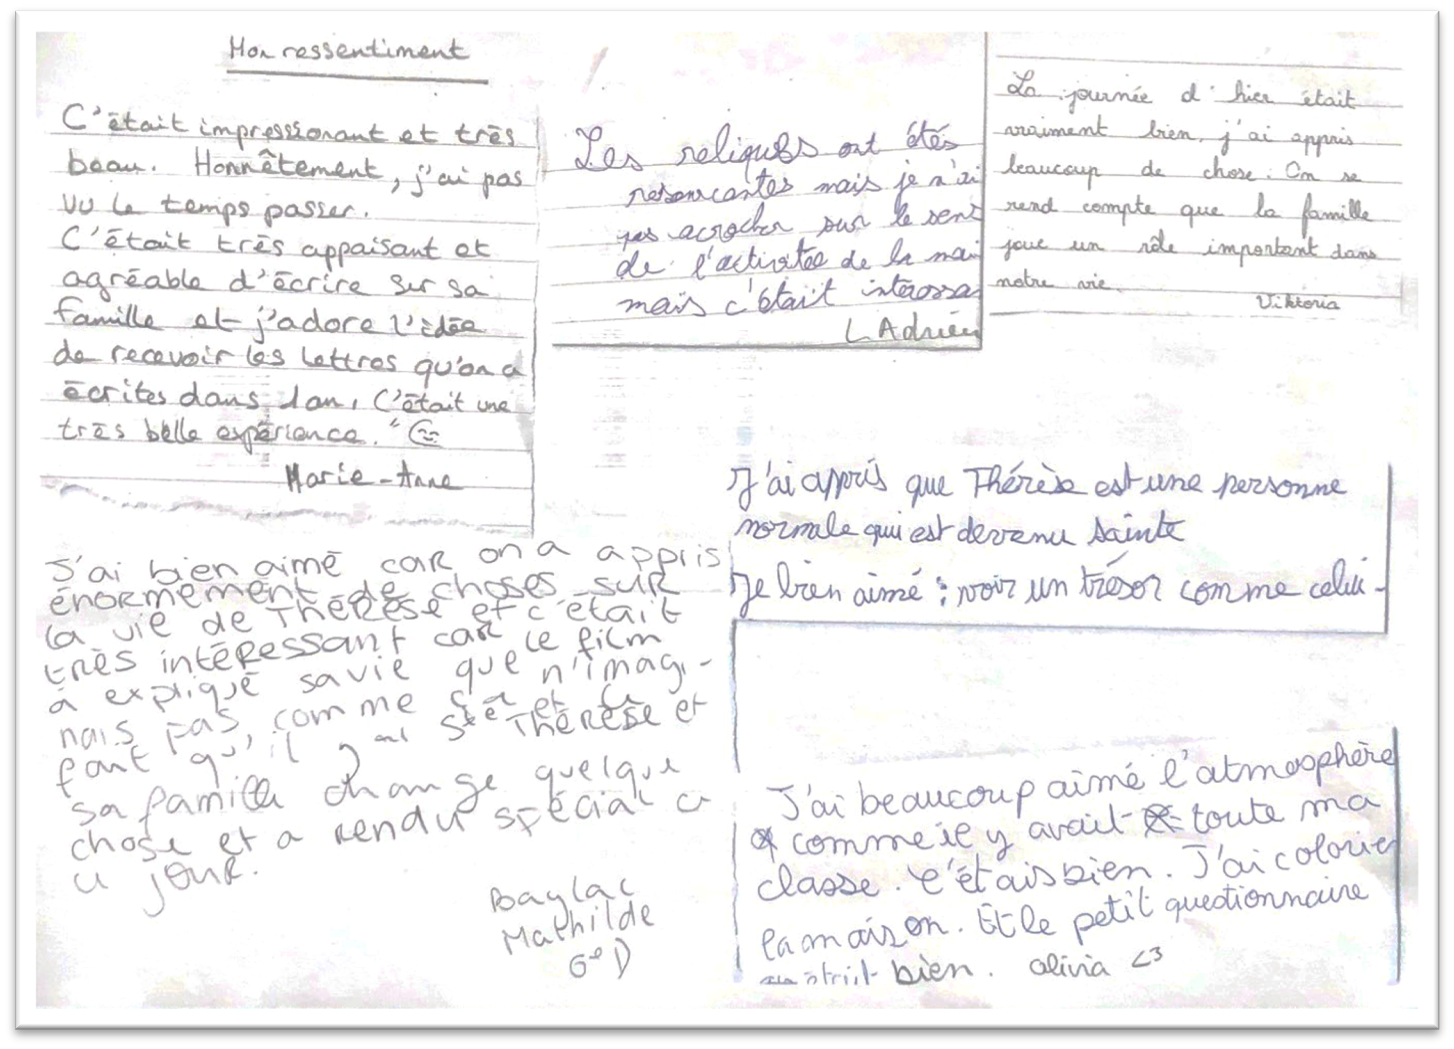 Mon ressentiment
C'était impressionant et très
beau. Honnêtement, j'ai pas
vu le temps passer.
C'était très appaisant et
agréable d'écrire sur sa
famille et j'adore l'idée
de recevoir les lettres qu'on a
écrites dans 1 an, C'était une
très belle expérience."
Marie-Anne
Les reliques ont étés
mais je n'ai
pas acrocher sur le sens
de l'activitée de la mai
mais c'était intéressa
L Adrien
La journée d'hier était
vraiment bien, j'ai appris
beaucoup de chose. On se
rend compte que la famille
joue un rôle important dans
notre vie.
Viktoria
J'ai appris que Thérèse est une personne
normale qui est devenu sainte
Je bien aimé : voir un trésor comme celui-
J'ai bien aimé car on a appris
énormément de choses sur
la vie de Thérèse et c'était
très intéressant car le film
a expliqué sa vie que n'imagi-
nais pas, comme ça et le
fait qu'il y ai Ste Thérèse et
sa famille change quelque
chose et a rendu spécial c
u jour.
Baylac
Mathilde
6e D
J'ai beaucoup aimé l'atmosphère
comme il y avait toute ma
classe. C'étais bien. J'ai colorier
la maison. Et le petit questionnaire
bien. Olivia <3